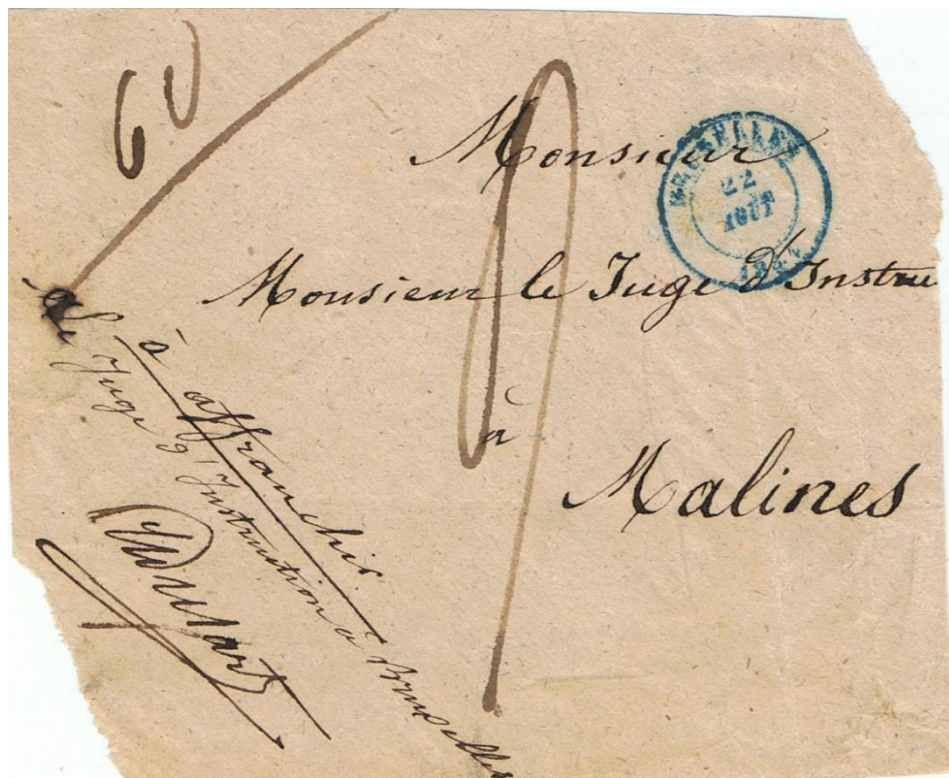 60
Monsieur
BRUXELLES
22
AOUT
Monsieur le Juge d'Instru
à
Malines
à affranchir
Le Juge d'Instruction à Bruxelles